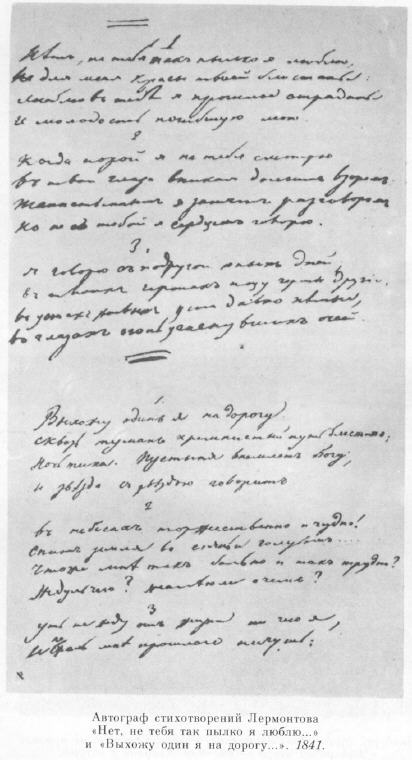 1
Нѣтъ, не тебя такъ пылко я люблю,
Не для меня красы твоей блистанье:
Люблю въ тебѣ я прошлое страданье
И молодость погибшую мою.
2
Когда порой я на тебя смотрю
Въ твои глаза вникая долгимъ взоромъ
Таинственнымъ я занятъ разговоромъ
Но не съ тобой я сердцемъ говорю.
3.
Я говорю съ подругой юныхъ дней,
Въ твоихъ чертахъ ищу черты другія,
Въ устахъ живыхъ уста давно нѣмыя,
Въ глазахъ огонь угаснувшихъ очей.
1
Выхожу одинъ я на дорогу
Сквозь туманъ кремнистый путь блеститъ;
Ночь тиха. Пустыня внемлетъ Богу,
И звѣзда съ звѣздою говоритъ
2
Въ небесахъ торжественно и чудно!
Спитъ земля въ сіяньи голубомъ....
Что же мнѣ такъ больно и такъ трудно?
Жду ль чего? жалѣю ли о чемъ?
3
Ужъ не жду отъ жизни ничего я,
И не жаль мнѣ прошлаго ничуть;
Автограф стихотворений Лермонтова
«Нет, не тебя так пылко я люблю...»
и «Выхожу один я на дорогу...». 1841.